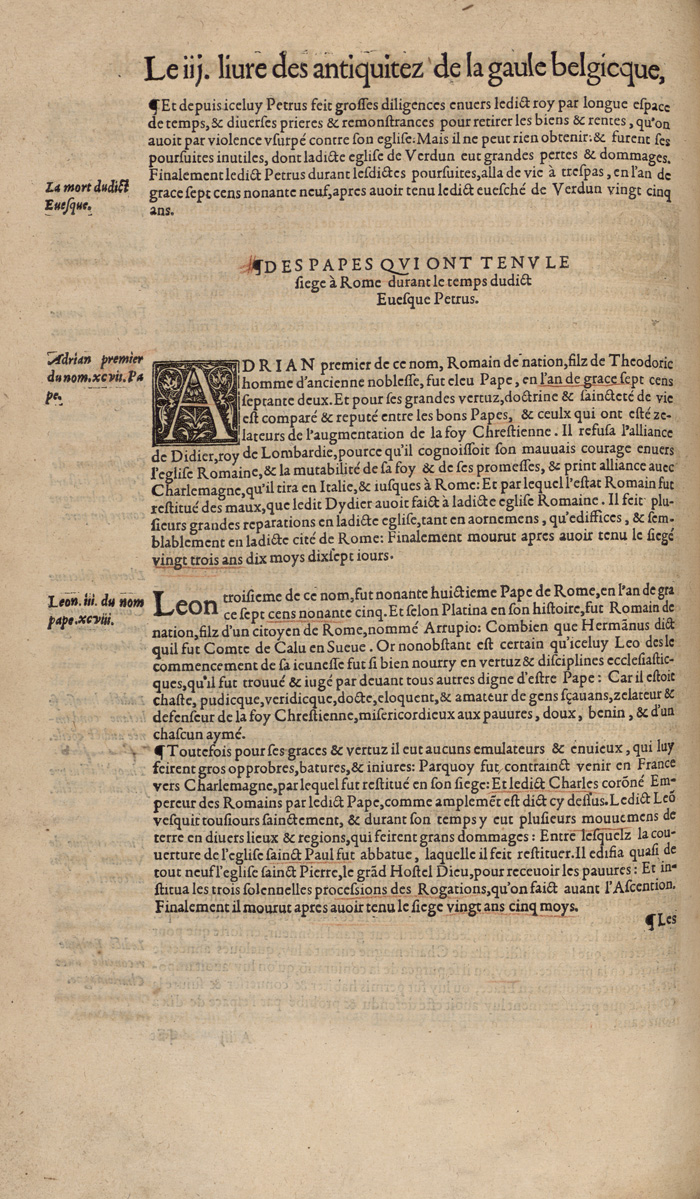 Le iij. liure des antiquitez de la gaule belgicque,
¶Et depuis iceluy Petrus feit grosses diligences enuers ledict roy par longue espace
de temps,& diuerses prieres & remonstrances pour retirer les biens & rentes, qu'on
auoit par violence vsurpé contre son eglise:Mais il ne peut rien obtenir:& furent ses
poursuites inutiles, dont ladicte eglise de Verdun eut grandes pertes & dommages.
Finalement ledict Petrus durant lesdictes poursuites,alla de vie à trespas, en l'an de
La mort dudict
Euesque.
grace sept cens nonante neuf,apres auoir tenu ledict euesché de Verdun vingt cinq
ans.
¶DES PAPES QVI ONT TENV LE
siege à Rome durant le temps dudict
Euesque Petrus.
Adrian premier
du nom.xcvii.Pa
pe.
ADRIAN premier de ce nom, Romain de nation,filz de Theodoric
homme d'ancienne noblesse, fut eleu Pape, en l'an de grace sept cens
septante deux.Et pour ses grandes vertuz,doctrine & saincteté de vie
est comparé & reputé entre les bons Papes, & ceulx qui ont esté ze-
lateurs de l'augmentation de la foy Chrestienne. Il refusa l'alliance
de Didier,roy de Lombardie,pource qu'il cognoissoit son mauuais courage enuers
l'eglise Romaine,& la mutabilité de sa foy & de ses promesses, & print alliance auec
Charlemagne,qu'il tira en Italie,& iusques à Rome:Et par lequel l'estat Romain fut
restitué des maux,que ledit Dydier auoit faict à ladicte eglise Romaine. Il feit plu-
sieurs grandes reparations en ladicte eglise,tant en aornemens, qu'ediffices, & sem-
blablement en ladicte cité de Rome: Finalement mourut apres auoir tenu le siege
vingt trois ans dix moys dixsept iours.
Leon. iii. du nom
pape.xcviii.
Leon troisieme de ce nom,fut nonante huictieme Pape de Rome,en l'an de gra
ce sept cens nonante cinq.Et selon Platina en son histoire,fut Romain de
nation,filz d'un citoyen de Rome,nommé Arrupio: Combien que Hermãnus dict
quil fut Comte de Calu en Sueue. Or nonobstant est certain qu'iceluy Leo desle
commencement de sa ieunesse fut si bien nourry en vertuz & disciplines ecclesiastic-
ques,qu'il fut trouué & iugé par deuant tous autres digne d'estre Pape: Car il estoit
chaste, pudicque,veridicque,docte,eloquent,& amateur de gens sçauans,zelateur &
defenseur de la foy Chrestienne,misericordieux aux pauures, doux, benin, & d'un
chascun aymé.
¶Toutefois pour ses graces & vertuz il eut aucuns emulateurs & enuieux, qui luy
feirent gros opprobres,batures,& iniures: Parquoy fut contrainct venir en France
vers Charlemagne,par lequel fut restitué en son siege: Et ledict Charles corõné Em-
pereur des Romains par ledict Pape,comme amplemẽt est dict cy dessus.Ledict Leõ
vesquit tousiours sainctement, & durant son temps y eut plusieurs mouuemens de
terre en diuers lieux & regions,qui feirent grans dommages: Entre lesquelz la cou-
uerture de l'eglise sainct Paul fut abbatue, laquelle il feit restituer.Il edifia quasi de
tout neuf l'eglise sainct Pierre,le grãd Hostel Dieu,pour receuoir les pauures: Et in-
stitua les trois solennelles processions des Rogations,qu'on faict auant l'Ascention.
Finalement il mourut apres auoir tenu le siege vingt ans cinq moys.
¶Les